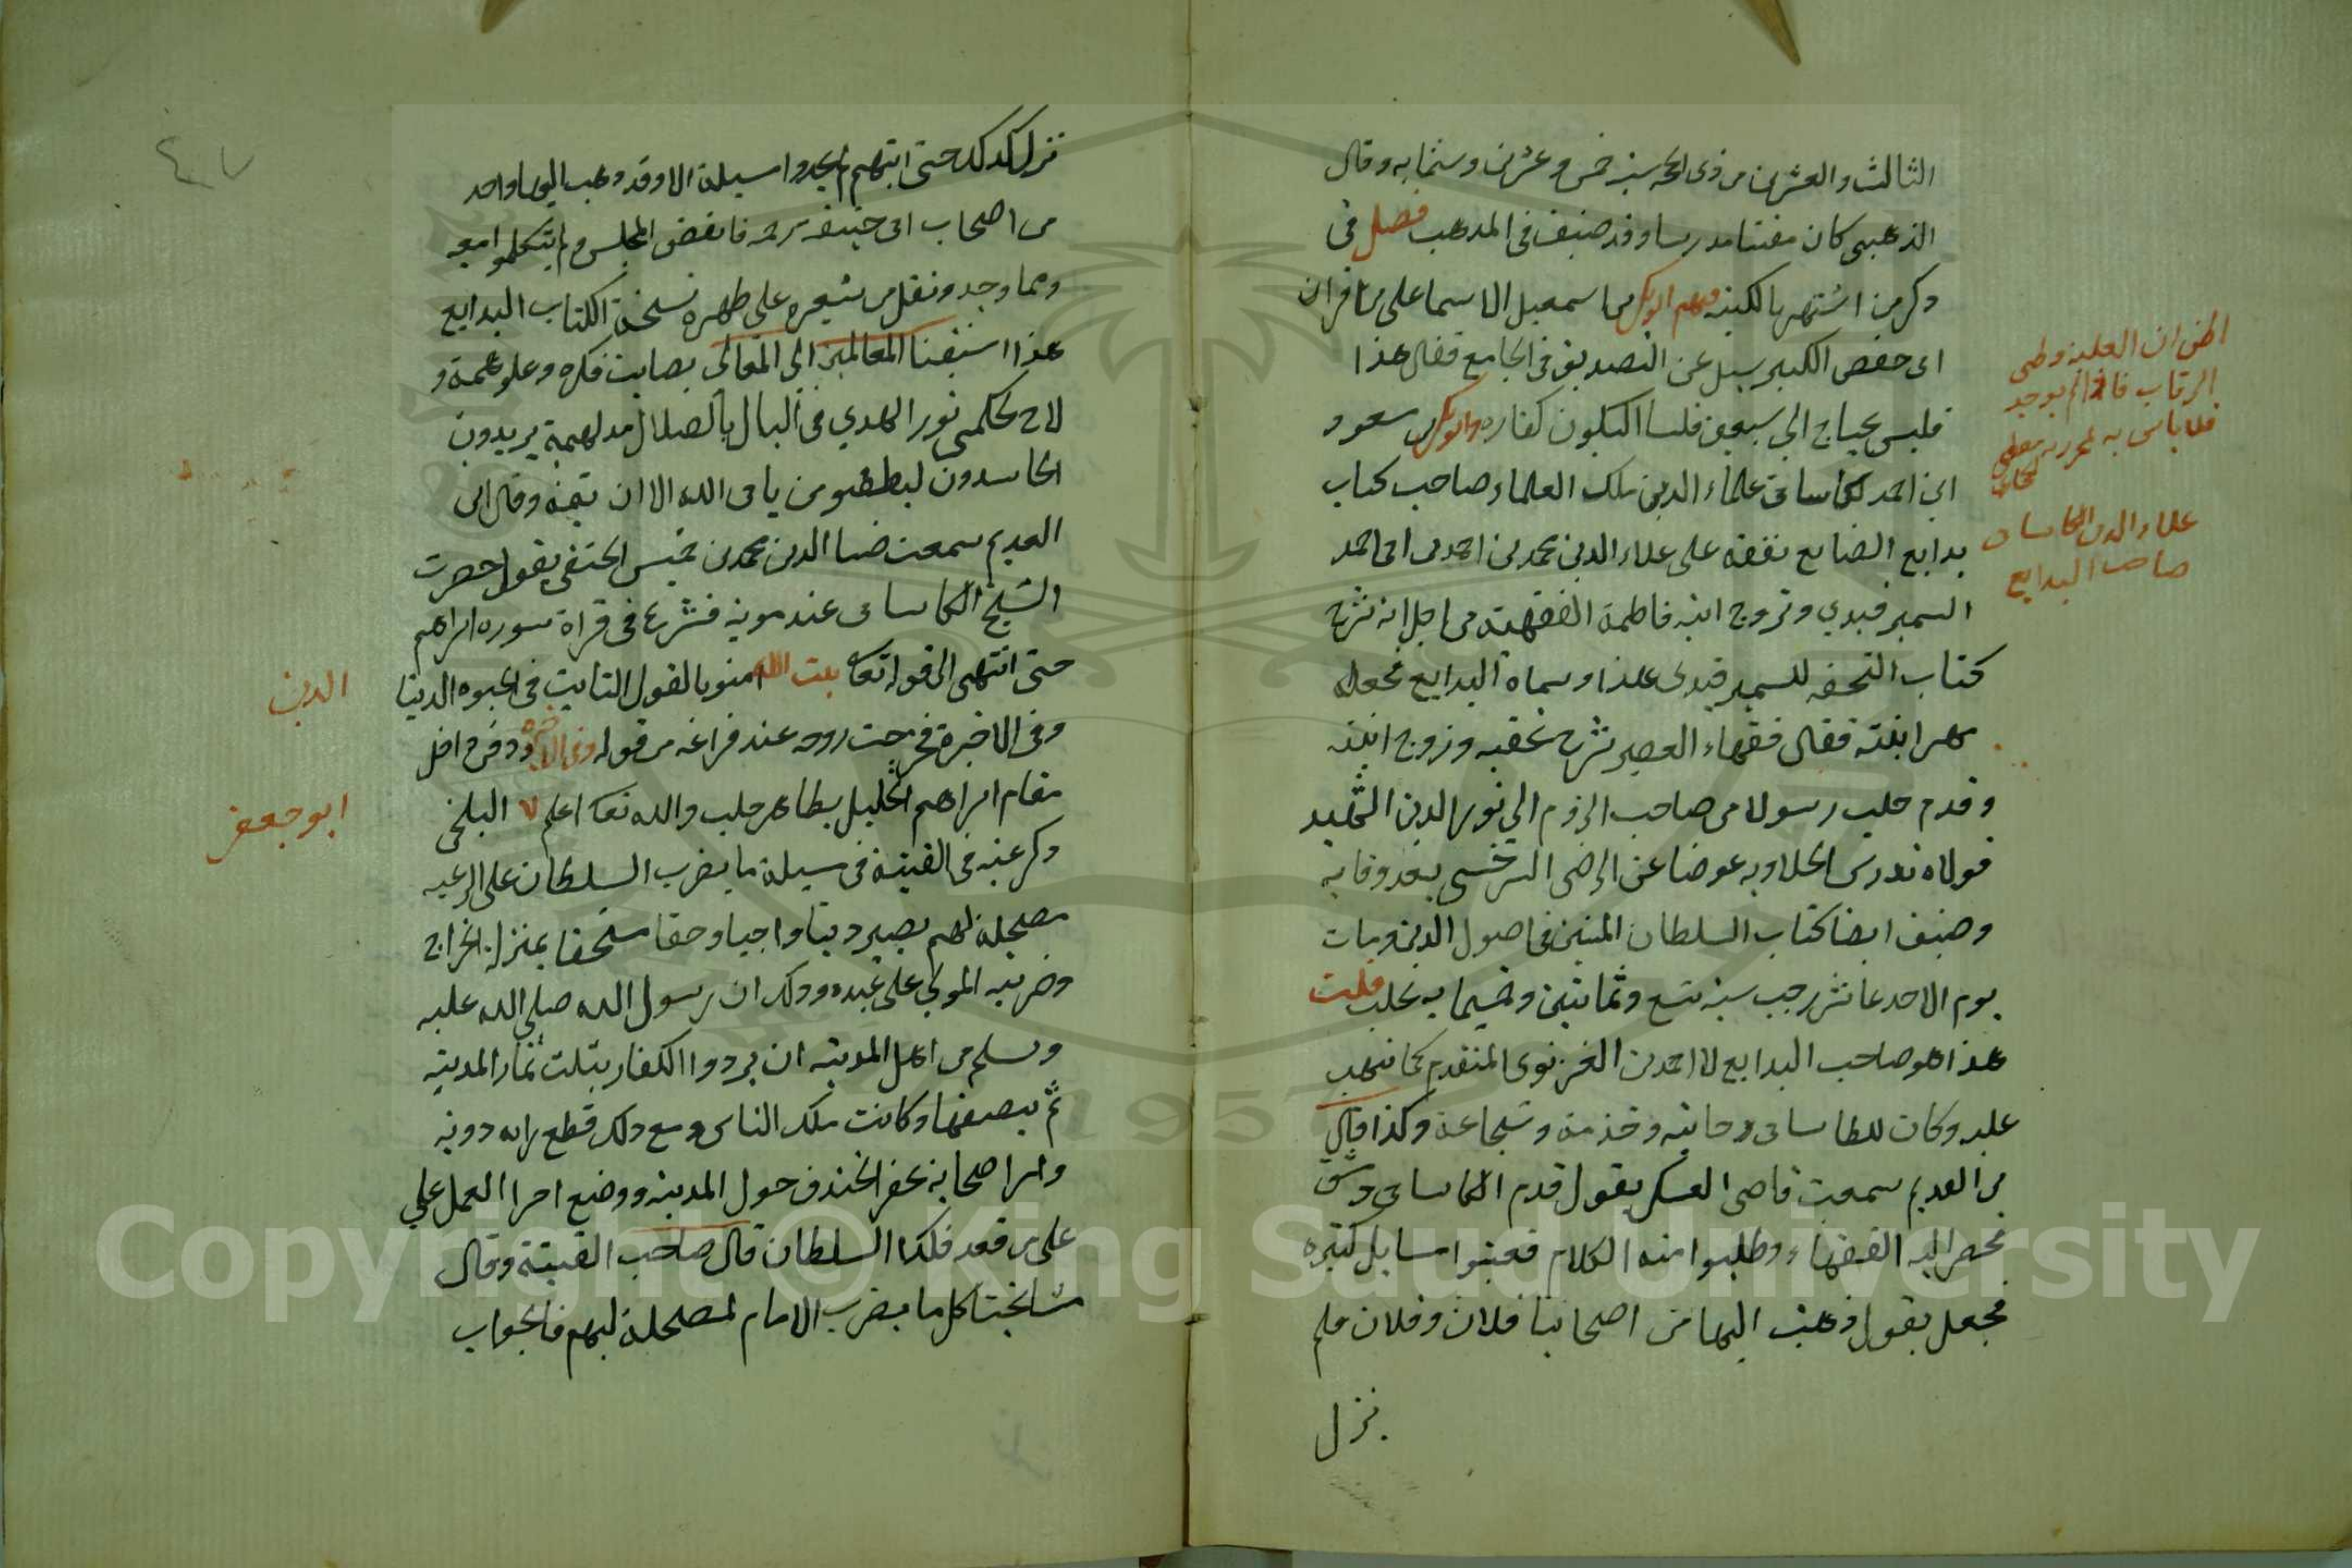 الثالث والعشرين من ذى الحجه سنه خمس وعشرين وستمايه وقال
الذهبى كان مفتيا مدرسا وقد صنف فى المذهب فصل فى
ذكر من اشتهر بالكنيه فمنهم ابو بكر بن اسمعيل الاسماعلى من اقران
ابى حفص الكبير سيل عن التصديق فى الجامع فقال هذا
فليس يحتاج الى سبعين فلسا ليكون كفاره وابو بكر بن مسعود
ابن احمد الكاسانى علاء الدين ملك العلماء صاحب كتاب
بدايع الصنايع تفقه على علاء الدين محمد بن احمد بن ابى احمد
السمرقندي وتزوج ابنته فاطمة الفقيهة من اجل انه شرح
كتاب التحفه للسمرقندى هذا وسماه البدايع فجعله
مهر ابنته فقال فقهاء العصر شرح تحفته وزوج ابنته
وقدم حلب رسولا من صاحب الروم الى نور الدين الشهيد
فولاه تدريس الحلاويه عوضا عن الرضى السرخسى بعد وفاته
وصنف ايضا كتاب السلطان المبين فى اصول الدين ومات
يوم الاحد عاشر رجب سنه تسع وثمانين وخمسمايه بحلب قلت
هذا هو صاحب البدايع لا احمد بن الغزنوى المتقدم كما نبهت
عليه وكان للكاسانى وخدمة وشجاعة وكذا قال
بن العديم سمعت قاضى العسكر يقول قدم الكاسانى دمشق
فحضر اليه الفقهاء وطلبوا منه الكلام فعينوا مسايل كثيره
فجعل يقول ذهب اليها من اصحابنا فلان وفلان فلم
يزل
اظن ان الغلبة وطى
الرقاب فاذا لم يوجد
فلا باس به
علاء الدين الكاسانى
صاحب البدايع
٤٧
يزل كذلك حتى انهم لم يجدوا مسيلة الا وقد ذهب اليها واحد
من اصحاب ابى حنيفه فانفض المجلس ولم يتكلموا معه
ومما وجد ونقل من شعره على ظهره نسخة الكتاب البدايع
سبقنا العالمين الى المعالى بصايب فكره وعلو همة و
لاح بحكمتى نور الهدي فى ليال بالضلال مدلهمة يريدون
الحاسدون ليطفئوه يابى الله الا ان يتمه وقال ابن
العديم سمعت ضيا الدين محمد بن خميس الحنفى يقول حضرت
الشيخ الكاسانى عند موته فشرع فى قراة سوره ابراهيم
حتى انتهى الى قوله تعا يثبت الله امنوا بالقول الثابت فى الحيوه الدنيا
وفى الاخرة فخرجت روحه عند فراغه من قوله وفى الاخره ودفن داخل
مقام ابراهيم الخليل بظاهر حلب والله تعا اعلم البلخى
ذكر عنه فى القنية فى مسيلة ما يضرب السلطان على الرعيه
مصلحة لهم يصير دينا واجبا وحقا مستحقا بمنزلة الخراج
وضريبه المولى على عبده وذلك ان رسول الله صلى الله عليه
وسلم من اهل المدينه ان يردوا الكفار بثلث ثمار المدينه
ثم بنصفها وكانت ملك الناس ومع ذلك قطع رايه دونه
وامر اصحابه بحفر الخندق حول المدينه ووضع اجر العمل على
على من قعد فلكذا السلطان قال صاحب القنية وقال
مشايخنا كل ما يضرب الامام لمصلحة لهم فالجواب
الدين
ابو جعفر
Copyright © King Saud University
1957